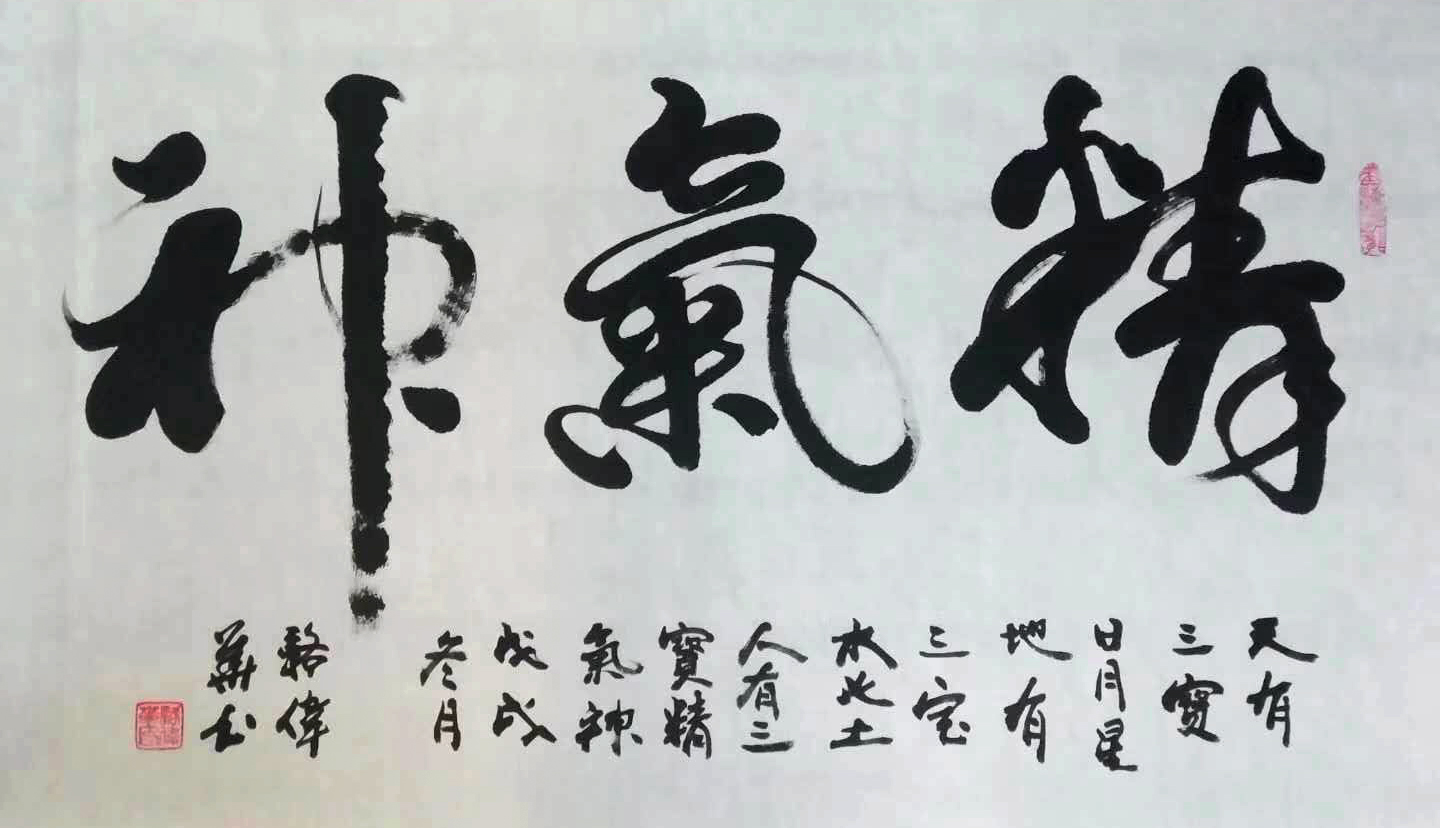 精氣神
天有
三寶
日月星
地有
三宝
水火土
人有三
寶精
氣神
戊戌
冬月
駱偉
華书